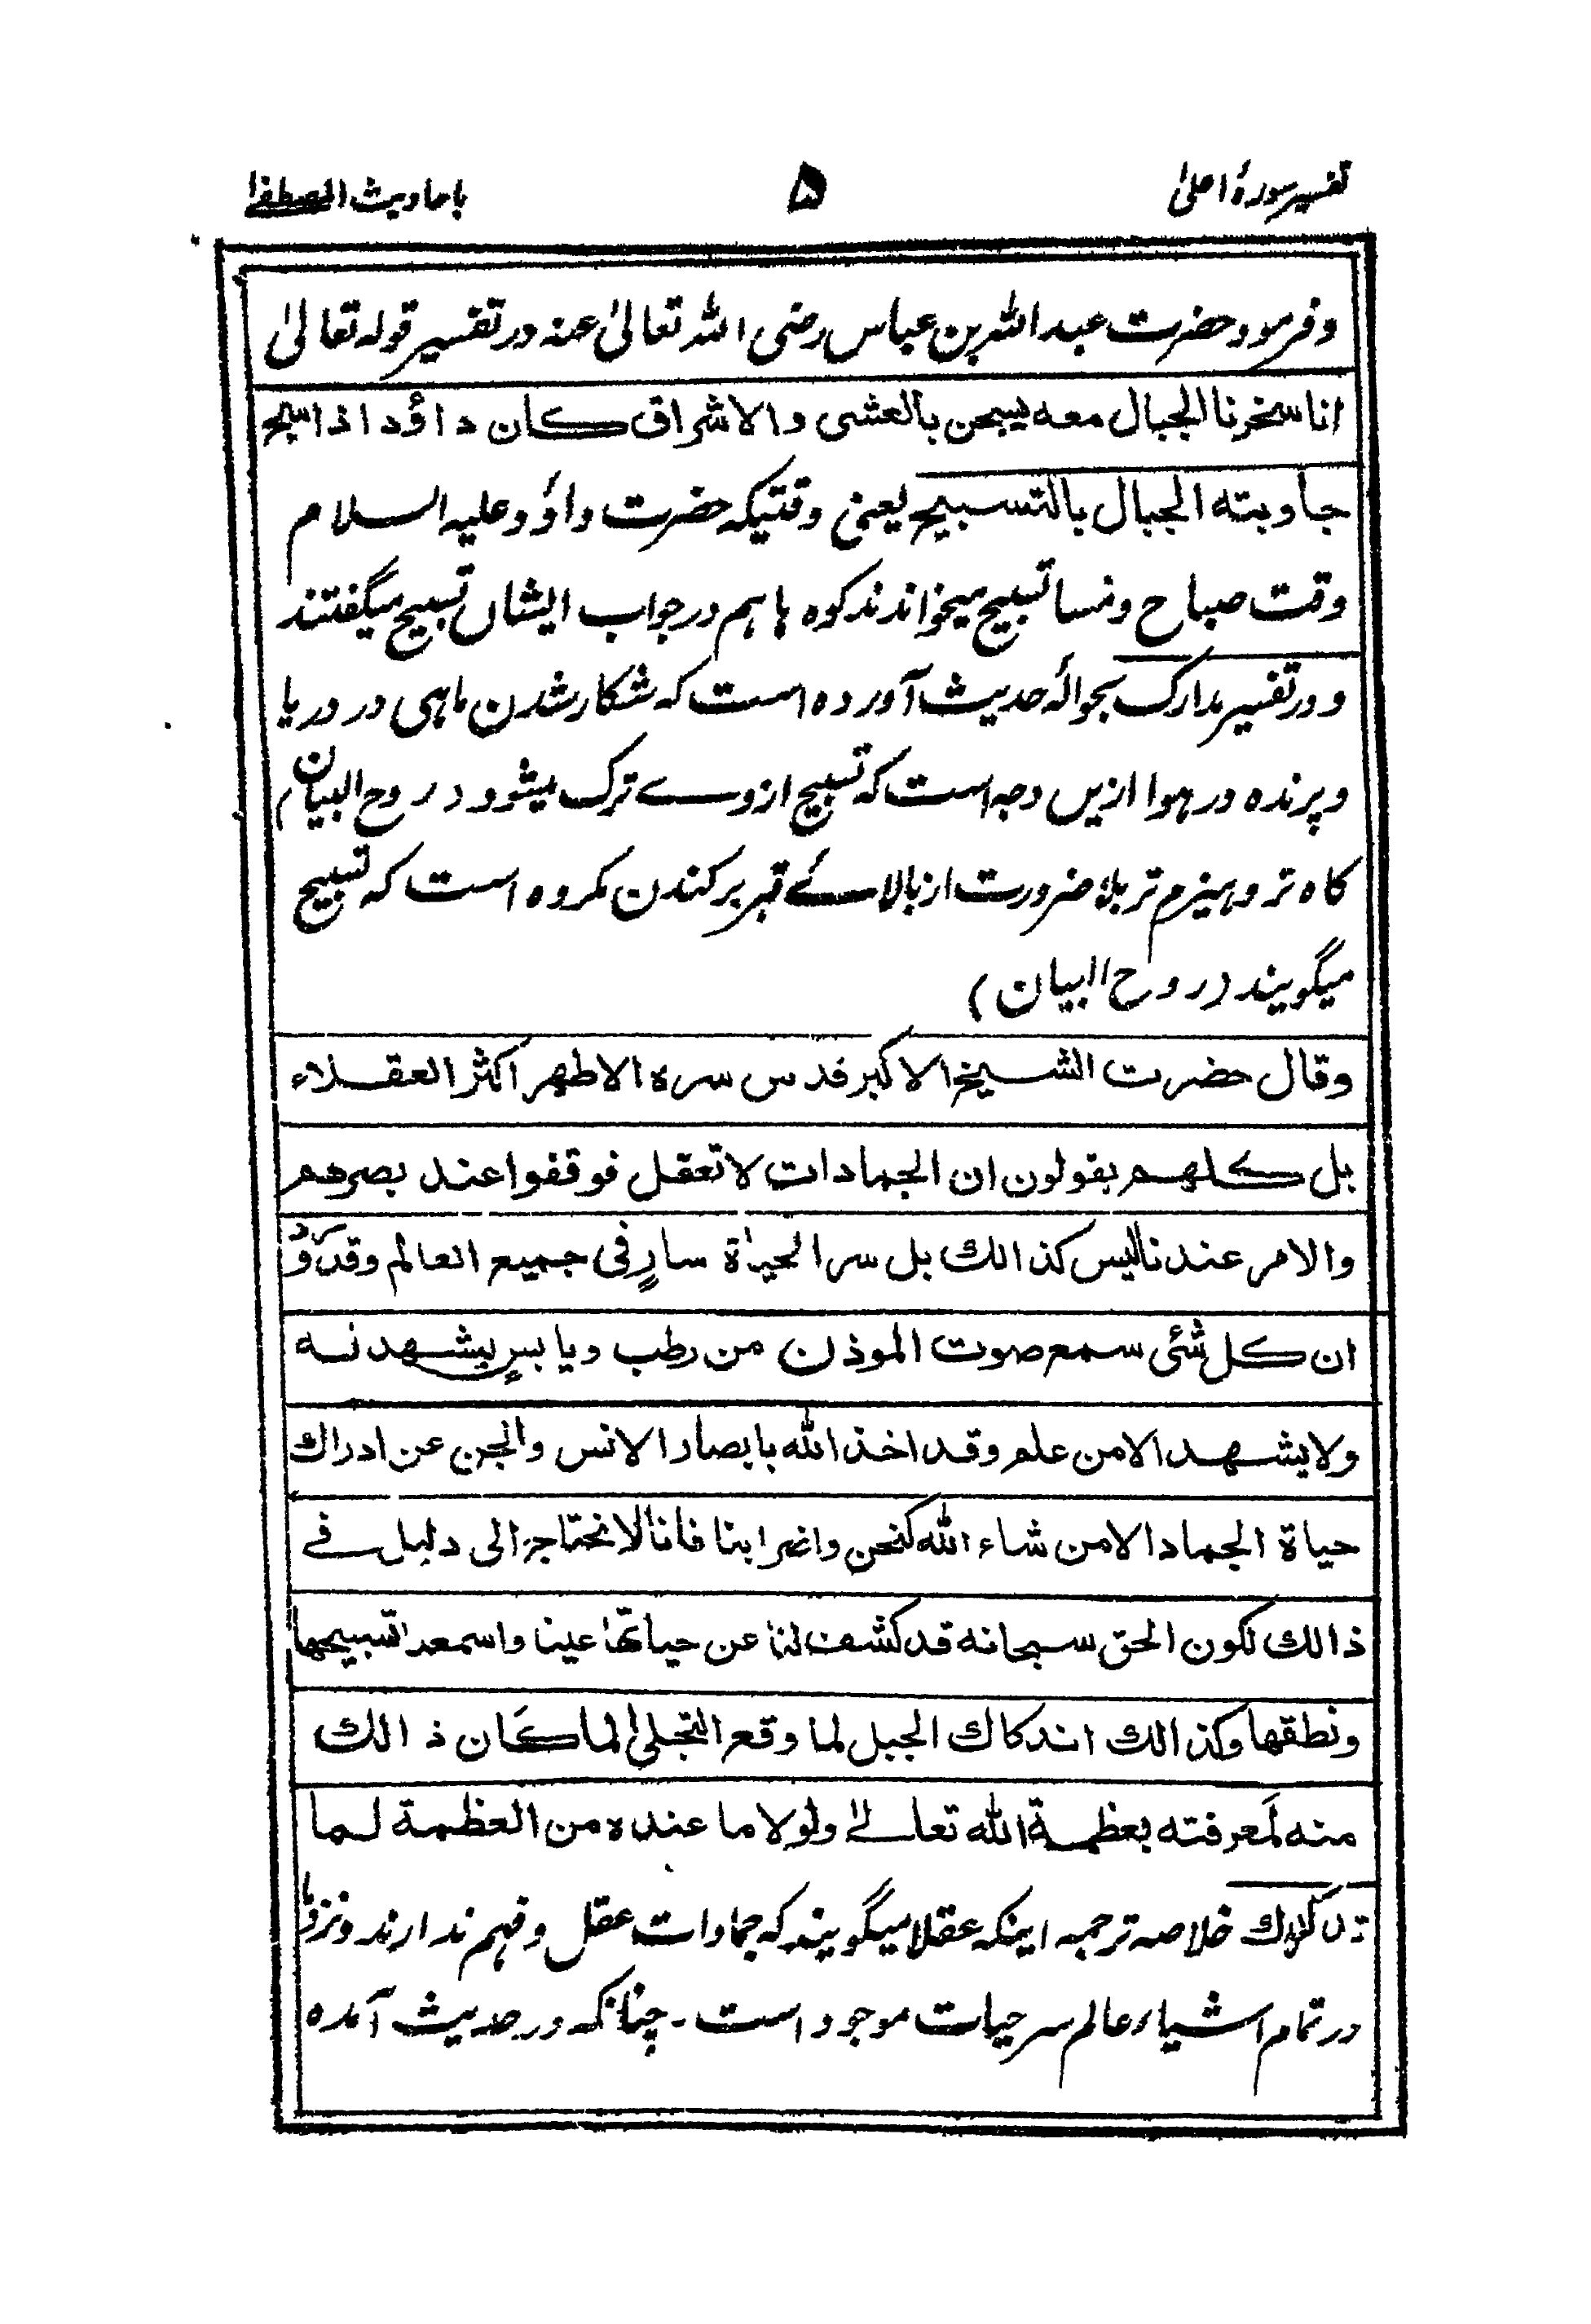 تفسیر سورۂ اعلیٰ
۵
باحادیث المصطفےٰ
وفرمود حضرت عبداللہ بن عباس رضی اللہ تعالیٰ عنہ در تفسیر قولہ تعالیٰ
انا سخرنا الجبال معہ یسبحن بالعشی والاشراق کان داؤد اذا سبح
جاوبتہ الجبال بالتسبیح یعنی وقتیکہ حضرت داؤد علیہ السلام
وقت صباح ومسا تسبیح میخواندند کوہ ہا ہم در جواب ایشاں تسبیح میگفتند
ودر تفسیر مدارک بحوالۂ حدیث آوردہ است کہ شکار شدن ماہی در دریا
وپرندہ در ہوا ازیں وجہ است کہ تسبیح ازوے ترک میشود (روح البیان)
کاہ تر وہیزم تر بلا ضرورت از بالائے قبر بر کندن مکروہ است کہ تسبیح
میگویند (روح البیان)
وقال حضرت الشیخ الاکبر قدس سرہ الاطہر اکثر العقلاء
بل کلہم یقولون ان الجمادات لا تعقل فوقفوا عند بصرھم
والامر عندنا لیس کذالک بل سر الحیاۃ سارٍ فی جمیع العالم وقد وَرَدَ
ان کل شئی سمع صوت الموذن من رطب ویابسٍ یشہد لہ
ولا یشہد الا من علم وقد اخذ اللہ بابصار الانس والجن عن ادراک
حیاۃ الجماد الا من شاء اللہ کنحن واضرابنا فانا لا نحتاج الی دلیل فے
ذالک لکون الحق سبحانہ قد کشف لنا عن حیاتھا عینا واسمعنا تسبیحھا
ونطقھا وکذالک اندکاک الجبل لما وقع التجلی لما کان ذالک
منہ لمعرفتہ بعظمۃ اللہ تعالےٰ ولولا ما عندہ من العظمۃ لما
تدکدک خلاصہ ترجمہ اینکہ عقلا میگویند کہ جمادات عقل وفہم ندارند ونزد ما
در تمام اشیاء عالم سر حیات موجود است ۔ چنانکہ در حدیث آمدہ